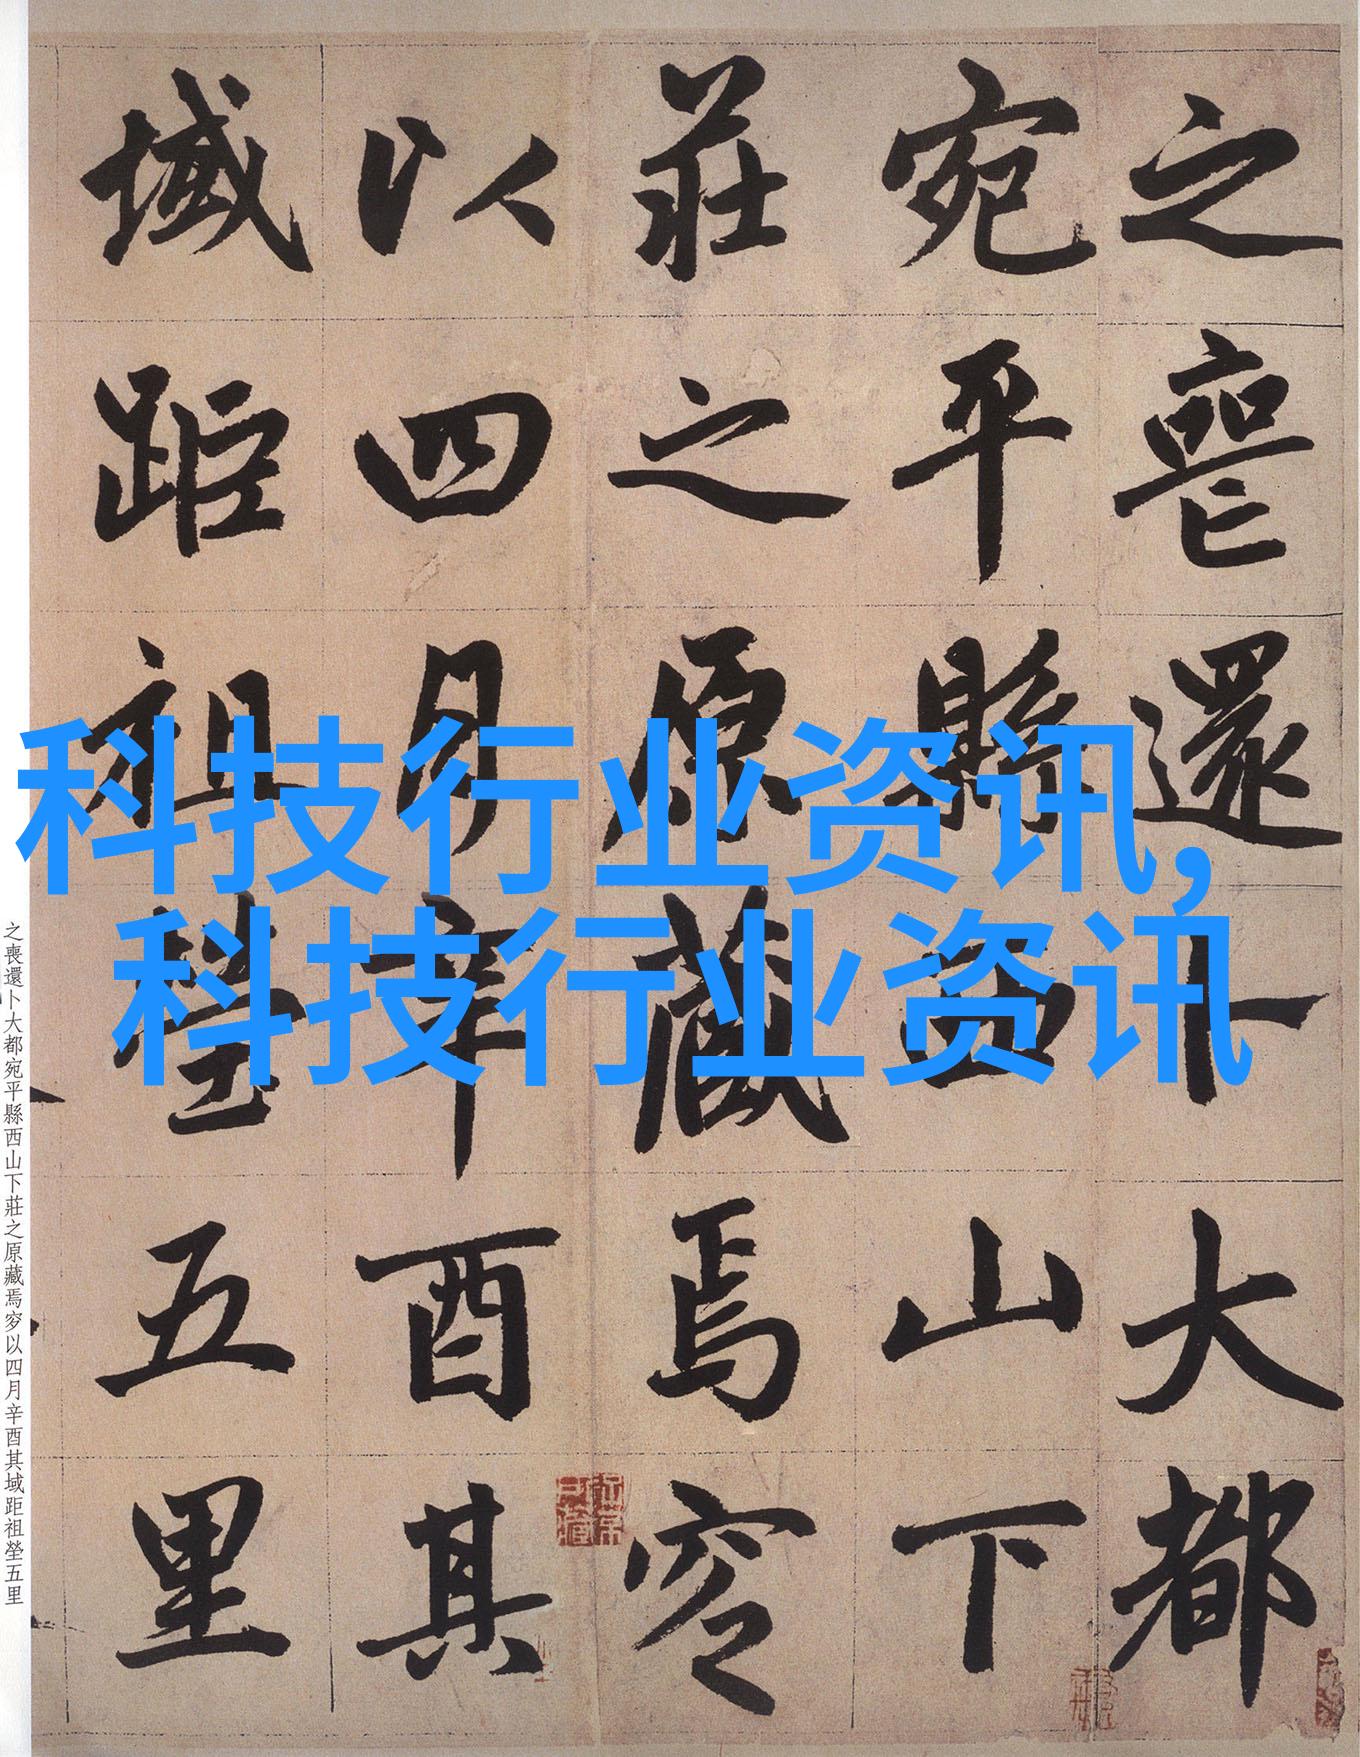 之喪還卜大都
宛平縣西山下
莊之原藏焉窆
以四月辛酉其
域距祖塋五里
科技行业资讯,
科技行业资讯
之喪還卜大都宛平縣西山下莊之原藏焉窆以四月辛酉其域距祖塋五里